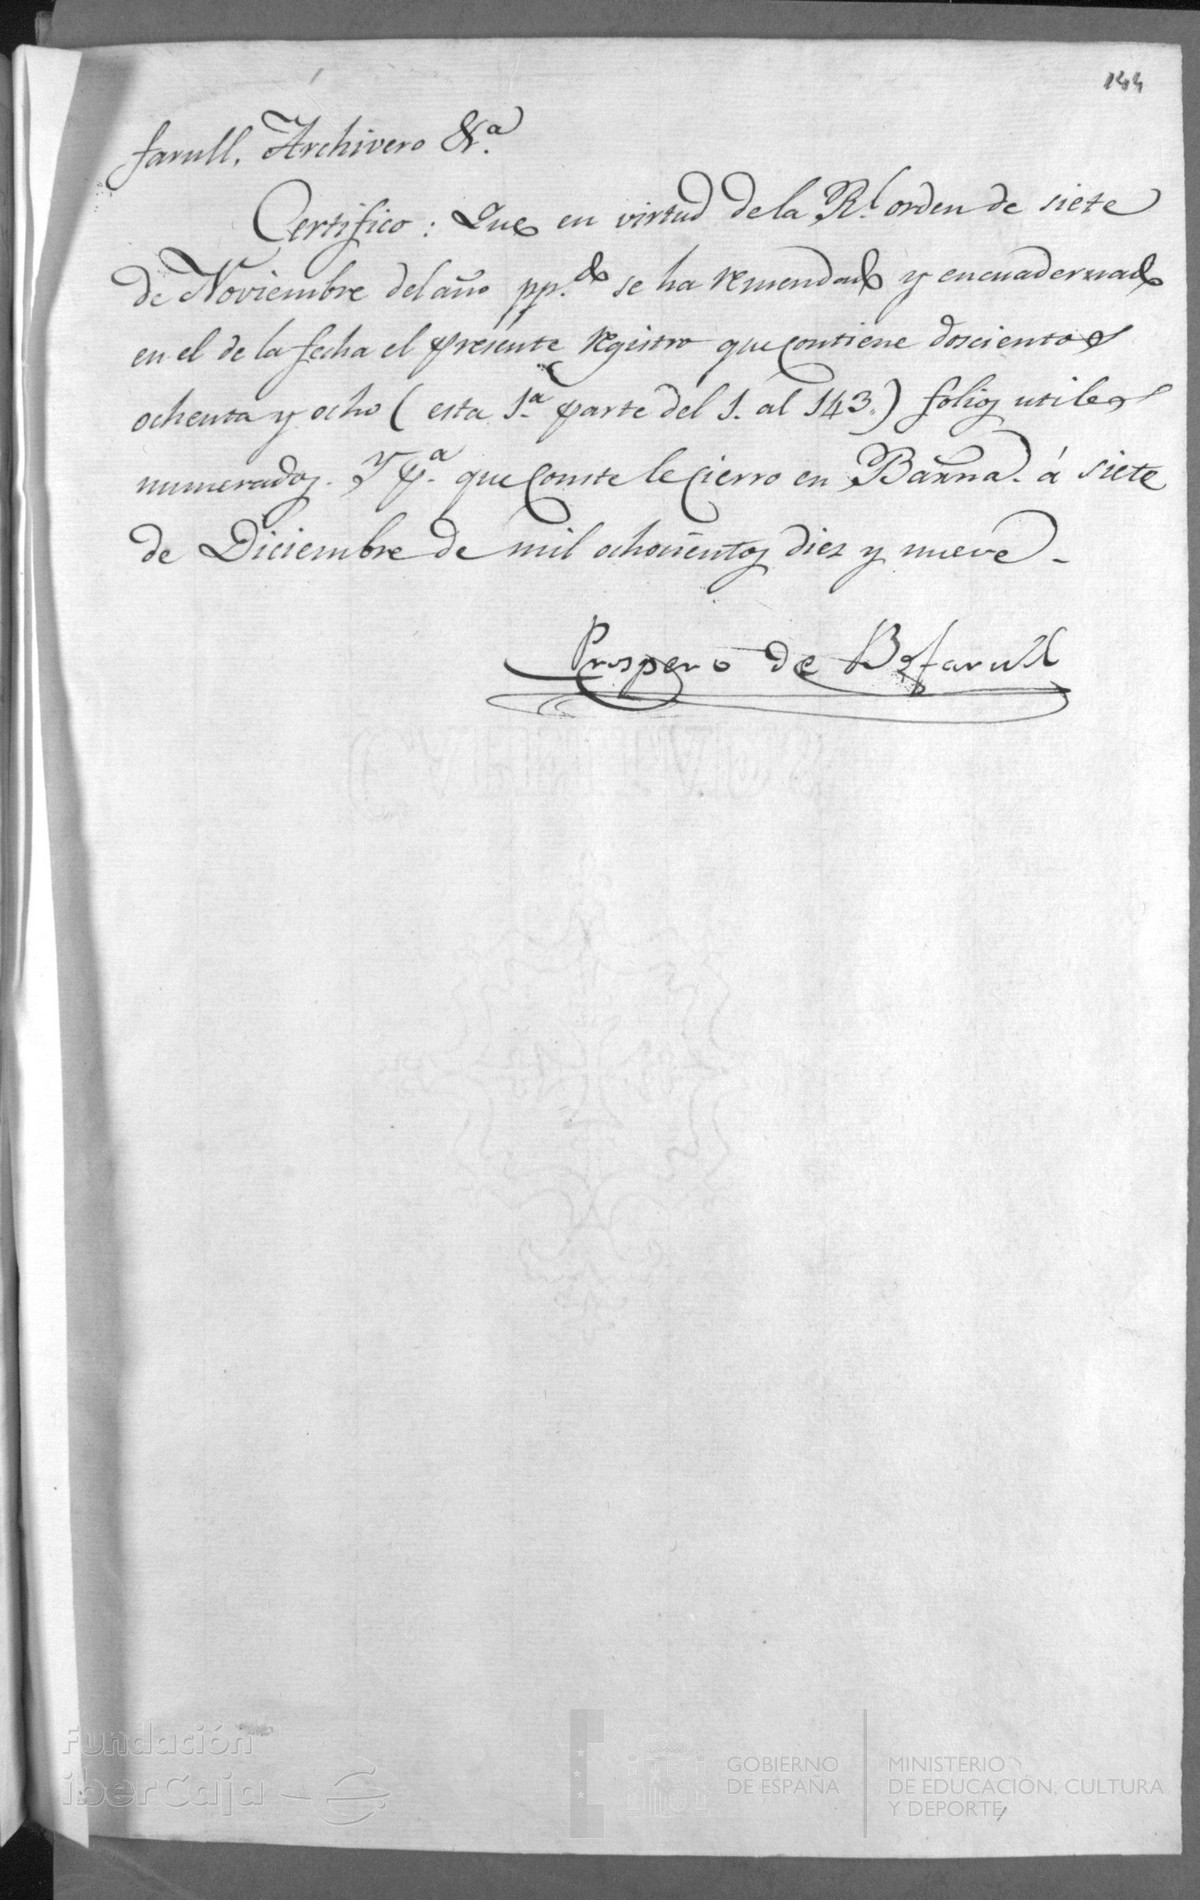 144
farull, Archivero &.ª
Certifico: Que en virtud de la R.l orden de siete
de Noviembre del año pp.do se ha remendado y encuadernado
en el de la fecha el presente registro que contiene doscientos
ochenta y ocho (esta 1.ª parte del 1. al 143.) folios utiles
numerados. Y p.ª que conste le cierro en Barna. á siete
de Diciembre de mil ochocientos diez y nueve.
Prospero de Bofarull
Fundación
iberCaja
GOBIERNO
DE ESPAÑA
MINISTERIO
DE EDUCACIÓN, CULTURA
Y DEPORTE